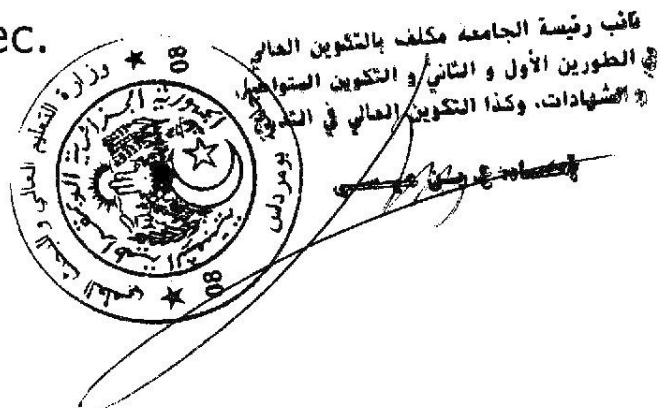 ec.
نائب رئيسة الجامعة مكلف بالتكوين العالي
الطورين الأول و الثاني و التكوين المتواصل
و الشهادات، وكذا التكوين العالي في التدرج
وزارة التعليم العالي و البحث العلمي
بومرداس
الجمهورية الجزائرية الديمقراطية الشعبية
08
08